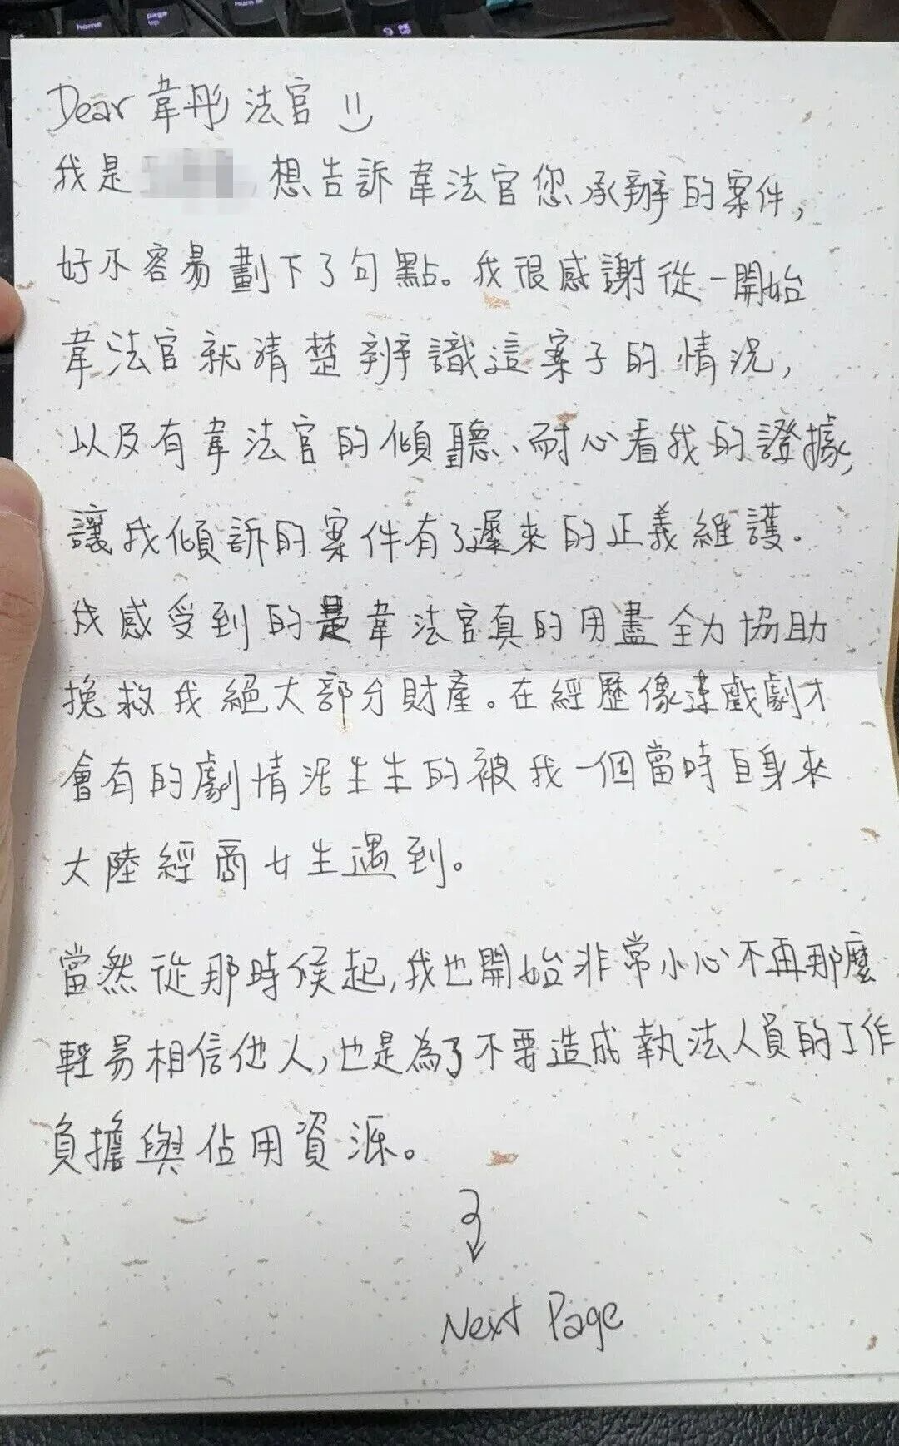 Dear 韋彤法官
我是 想告訴韋法官您承辦的案件,
好不容易劃下了句點。我很感謝從一開始
韋法官就清楚辨識這案子的情況,
以及有韋法官的傾聽、耐心看我的證據,
讓我傾訴的案件有了遲來的正義維護.
我感受到的是韋法官真的用盡全力協助
挽救我絕大部分財產。在經歷像連戲劇才
會有的劇情活生生的被我一個當時自身來
大陸經商女生遇到。
當然從那時候起,我也開始非常小心不再那麼
輕易相信他人,也是為了不要造成執法人員的工作
負擔與佔用資源。
Next Page